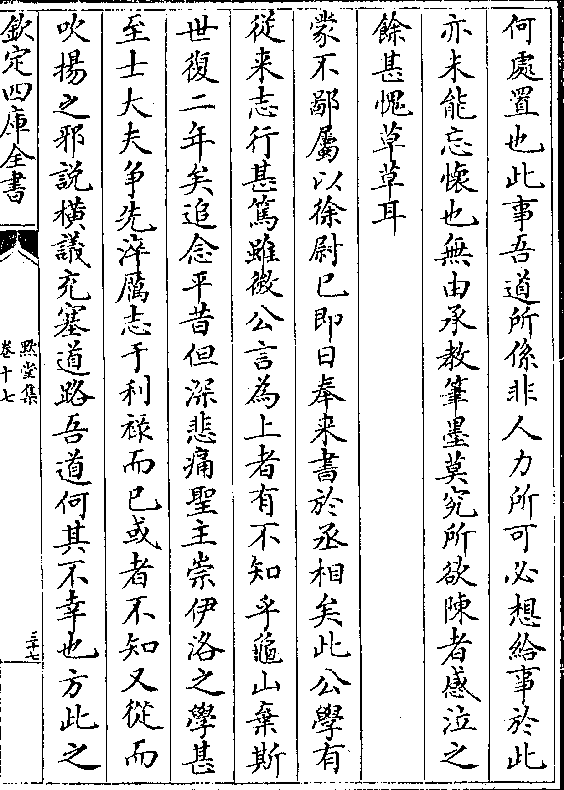 何處置也此事吾道所係非人力所可必想給事於此
亦未能忘懷也無由承教筆墨莫究所欲陳者感泣之
餘甚愧草草耳
蒙不鄙屬以徐尉已即日奉来書於丞相矣此公學有
從来志行甚篤雖微公言為上者有不知乎龜山棄斯
世復二年矣追念平昔但深悲痛聖主崇伊洛之學甚
至士大夫争先淬厲志于利祿而已或者不知又從而
吹揚之邪説橫議充塞道路吾道何其不幸也方此之
欽定四庫全書
黙堂集
卷十七
三十七